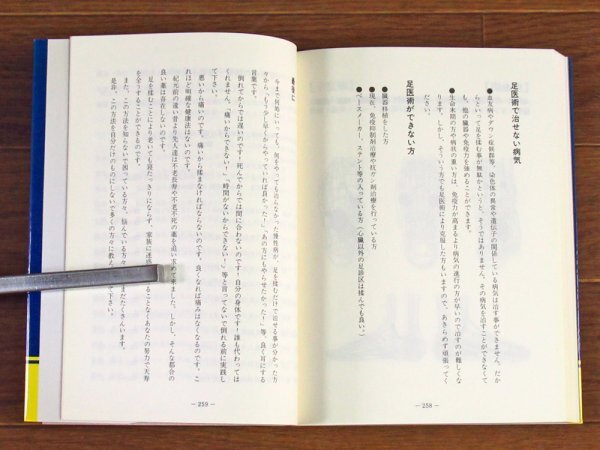 足医術で治せない病気
●血友病やダウン症候群等、染色体の異常や遺伝子の関係している病気は治す事ができません。だか
らといって足を揉む事が無駄かというと、そうではありません。その病気を治すことができなくて
も、他の臓器や免疫力を強めることができます。
●生命末期の方や病状の重い方は、免疫力が高まるより病気の進行の方が早いので治すのが難しくな
ります。しかし、そういう方でも足医術により克服した方もいますので、あきらめず頑張ってく
ださい。
足医術ができない方
●臓器移植をした方
●現在、免疫抑制剤治療や抗ガン剤治療を行っている方
●ペースメーカー、ステント等の入っている方（心臓以外の足診区は揉んでも良い。）
－258－
最後に
今まで何処にいっても、何をやっても治らなかった慢性病が、足を揉むだけで治せる事が分かった方
々から、もう少し早くからやっていれば良かった！」「あの方にもやらせたかった！」等、良く耳にする
言葉です。
倒れてからでは遅いのです！死んでからでは間に合わないのです！自分の身体です！誰も代わっては
くれません。「痛いからできない！」「時間がないからできない！」等と言ってないで倒れる前に実践し
て下さい。
悪いから痛いのです。痛いから揉まなければならないのです。良くなれば痛みはなくなるのです。こ
れほど明確な健康法はないのです。
紀元前の遠い昔より先人達は不老長寿や不老不死の薬を追い求めて来ました。しかし、そんな都合の
良い薬は存在しないのです。
足を揉むことにより老いても寝たっきりにならず、家族に迷惑 ることなくあなたの努力で天寿
を全うすることができるのです。
また、この方法を知らないで困っている方々、悩んでいる方々 まだたくさんいます。
是非、この方法を自分だけのものにしないで多くの方々に教え て下さい。
－259－